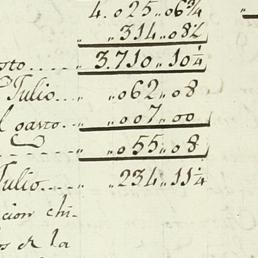 4.025,,06¾
,,314,,08½
sto... 3.710,,10¼
Julio... ,,062,,08
l gasto. ,,007,,00
,,055,,08
Julio... ,,234,,11¼
cion chi-
os de la